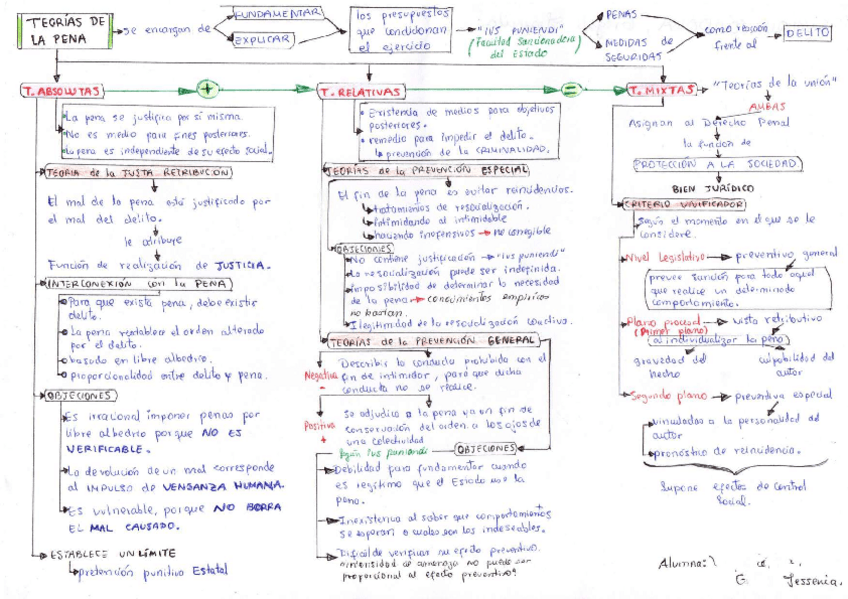 TEORÍAS DE
LA PENA
se encargan de
FUNDAMENTAR
EXPLICAR
los presupuestos
que condicionan
el ejercicio
"IUS PUNIENDI"
(Facultad Sancionadora
del Estado)
PENAS
MEDIDAS de
SEGURIDAD
como reacción
frente al
DELITO
T. ABSOLUTAS
+
T. RELATIVAS
=
T. MIXTAS
"Teorías de la unión"
La pena se justifica por si misma.
No es medio para fines posteriores.
La pena es independiente de su efecto social.
TEORIA de la JUSTA RETRIBUCION
El mal de la pena está justificado por
el mal del delito.
le atribuye
Función de realización de JUSTICIA.
INTERCONEXIÓN con la PENA
Para que exista pena, debe existir
delito.
La pena restablece el orden alterado
por el delito.
basado en libre albedrio.
proporcionalidad entre delito y pena.
OBJECIONES
Es irracional imponer penas por
libre albedrio porque NO ES
VERIFICABLE.
La devolución de un mal corresponde
al IMPULSO de VENGANZA HUMANA.
Es vulnerable, porque NO BORRA
EL MAL CAUSADO.
ESTABLECE UN LÍMITE
pretención punitiva Estatal
Existencia de medios para objetivos
posteriores.
remedio para impedir el delito.
prevención de la CRIMINALIDAD.
TEORÍAS de la PREVENCIÓN ESPECIAL
El fin de la pena es evitar reincidencias.
tratamientos de resocialización.
intimidando al intimidable
haciendo inofensivos → no corregible
OBJECIONES
No contiene justificación → "ius puniendi"
La resocialización puede ser indefinida.
Imposibilidad de determinar la necesidad
de la pena → conocimientos empíricos
no bastan.
Ilegitimidad de la resocialización coactiva.
TEORÍAS de la PREVENCIÓN GENERAL
Negativa
-
Describir la conducta prohibida con el
fin de intimidar, para que dicha
conducta no se realice.
Positiva
+
Se adjudica a la pena ya un fin de
conservación del orden a los ojos de
una colectividad
según Ius puniendi
OBJECIONES
Debilidad para fundamentar cuando
es legítimo que el Estado use la
pena.
Inexistencia al saber que comportamientos
se esperan o cuales son los indeseables.
Dificil de verificar su efecto preventivo.
proporcional al efecto preventivo?
AMBAS
Asignan al Derecho Penal
la función de
PROTECCIÓN A LA SOCIEDAD
BIEN JURÍDICO
CRITERIO UNIFICADOR
Según el momento en el que se le
considere.
Nivel Legislativo → preventivo general
prevee sanción para todo aquel
que realice un determinado
comportamiento.
Plano procesal → vista retributiva
(Primer plano)
al individualizar la pena
gravedad del
hecho
culpabilidad del
autor
Segundo plano → preventiva especial
vinculadas a la personalidad del
autor
pronóstico de reincidencia.
Supone efectos de control
Social.
Alumna:
G. Jessenia.